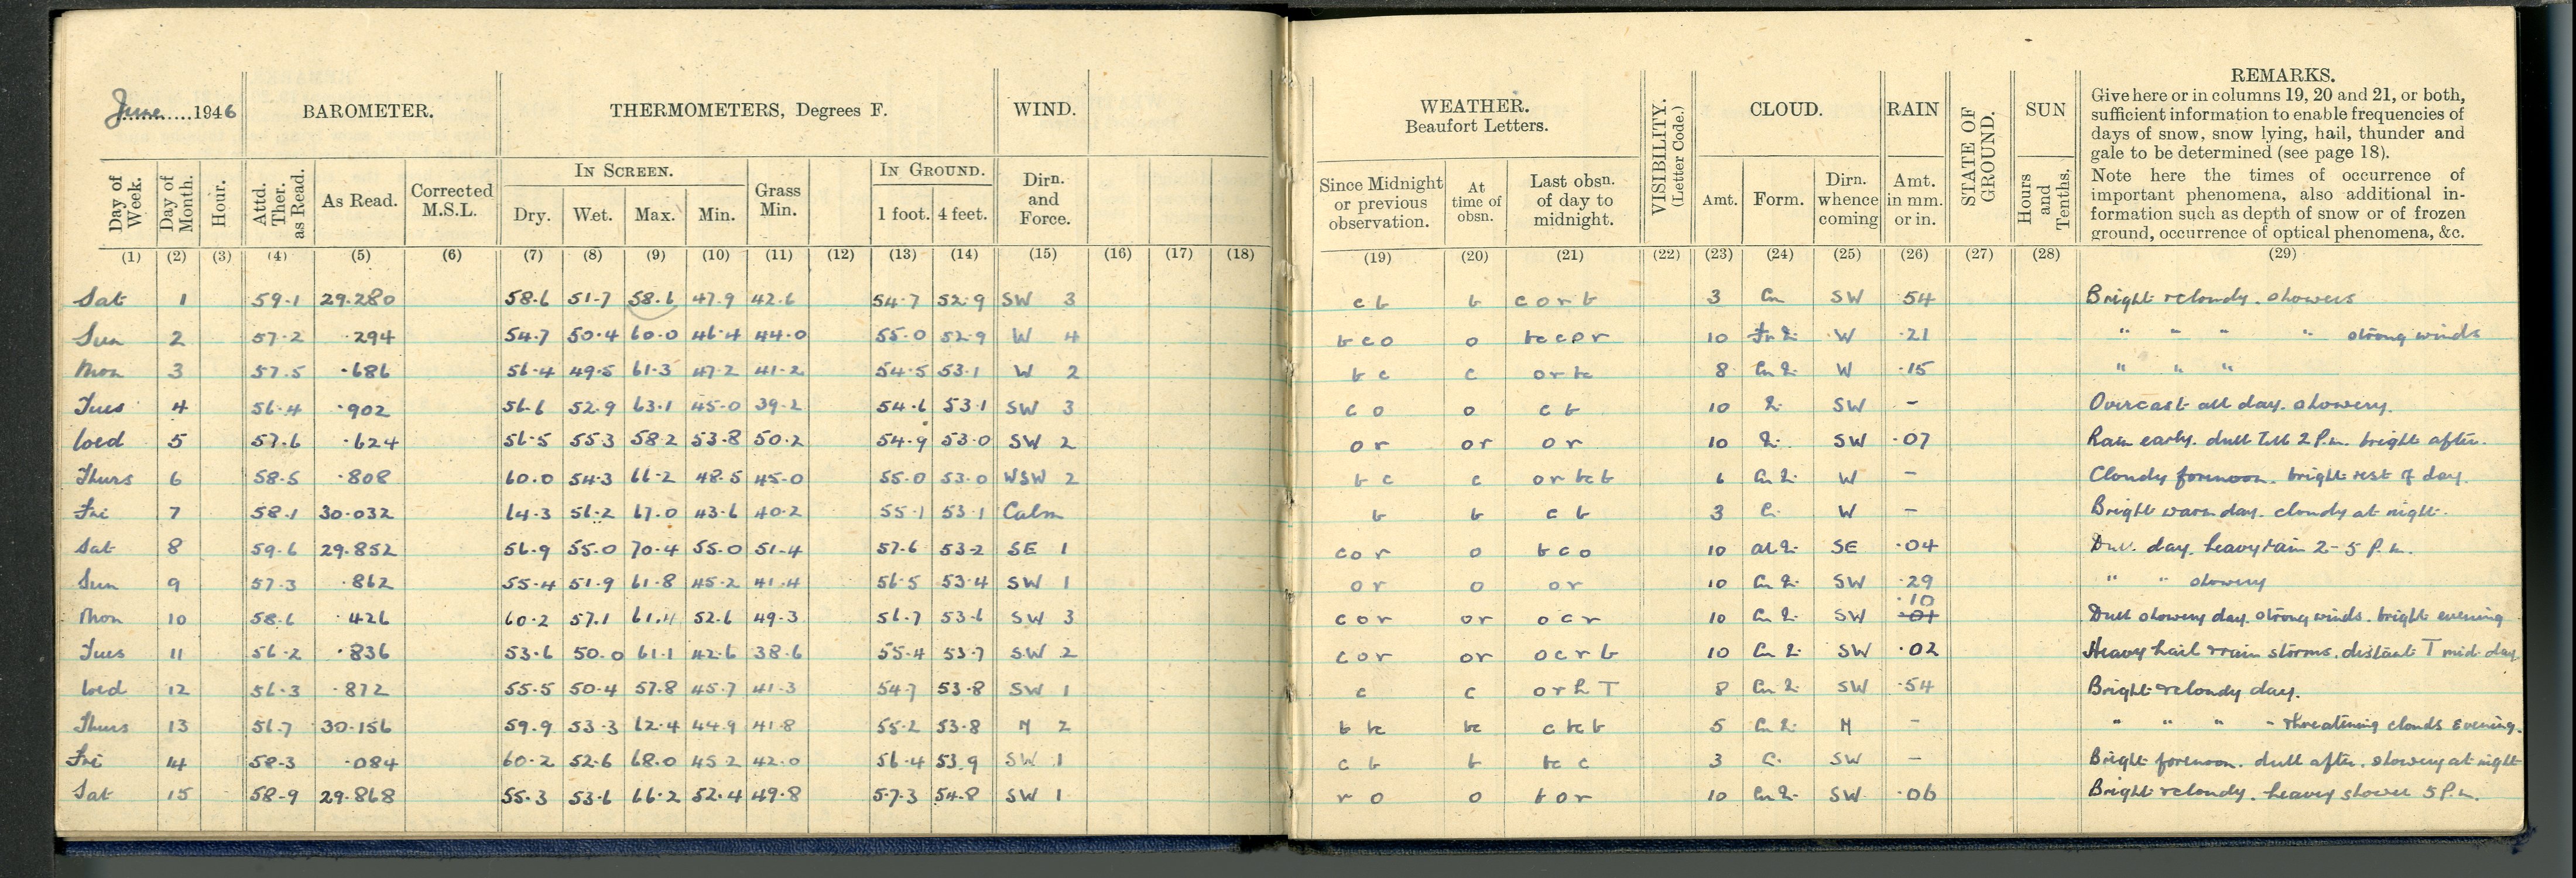 June 1946 BAROMETER. THERMOMETERS, Degrees F. WIND.
IN SCREEN. IN GROUND.
Day of Week. Day of Month. Hour. Attd. Ther. as Read. As Read. Corrected M.S.L. Dry. Wet. Max. Min. Grass Min. 1 foot. 4 feet. Dirn. and Force.
(1) (2) (3) (4) (5) (6) (7) (8) (9) (10) (11) (12) (13) (14) (15) (16) (17) (18)
Sat 1 59.1 29.280 58.6 51.7 58.6 47.9 42.6 54.7 52.9 SW 3
Sun 2 57.2 .294 54.7 50.4 60.0 46.4 44.0 55.0 52.9 W 4
Mon 3 57.5 .686 56.4 49.5 61.3 47.2 41.2 54.5 53.1 W 2
Tues 4 56.4 .902 56.6 52.9 63.1 45.0 39.2 54.6 53.1 SW 3
Wed 5 57.6 .624 56.5 55.3 58.2 53.8 50.2 54.9 53.0 SW 2
Thurs 6 58.5 .808 60.0 54.3 66.2 48.5 45.0 55.0 53.0 WSW 2
Fri 7 58.1 30.032 64.3 56.2 67.0 43.6 40.2 55.1 53.1 Calm
Sat 8 59.6 29.852 56.9 55.0 70.4 55.0 51.4 57.6 53.2 SE 1
Sun 9 57.3 .862 55.4 51.9 61.8 45.2 41.4 56.5 53.4 SW 1
Mon 10 58.6 .426 60.2 57.1 61.4 52.6 49.3 56.7 53.6 SW 3
Tues 11 56.2 .836 53.6 50.0 61.1 42.6 38.6 55.4 53.7 SW 2
Wed 12 56.3 .872 55.5 50.4 57.8 45.7 41.3 54.7 53.8 SW 1
Thurs 13 56.7 30.156 59.9 53.3 62.4 44.9 41.8 55.2 53.8 N 2
Fri 14 58.3 .084 60.2 52.6 68.0 45.2 42.0 56.4 53.9 SW 1
Sat 15 58.9 29.868 55.3 53.6 66.2 52.4 49.8 57.3 54.8 SW 1
WEATHER. Beaufort Letters. VISIBILITY. (Letter Code.) CLOUD. RAIN STATE OF GROUND. SUN REMARKS.
Give here or in columns 19, 20 and 21, or both,
sufficient information to enable frequencies of
days of snow, snow lying, hail, thunder and
gale to be determined (see page 18).
Note here the times of occurrence of
important phenomena, also additional in-
formation such as depth of snow or of frozen
ground, occurrence of optical phenomena, &c.
Since Midnight or previous observation. At time of obsn. Last obsn. of day to midnight. Amt. Form. Dirn. whence coming Amt. in mm. or in. Hours and Tenths.
(19) (20) (21) (22) (23) (24) (25) (26) (27) (28) (29)
c b b c o r b 3 Cu SW .54 Bright & cloudy. showers
b c o o bc c o r 10 W .21 " " " " strong winds
b c c o r bc 8 W .15 " " "
c o o c b 10 SW - Overcast all day. showery.
o r o r o r 10 SW .07 Rain early. dull till 2 P.m. bright after.
b c c o r bc b 6 W - Cloudy forenoon. bright rest of day.
b b c b 3 W - Bright warm day. cloudy at night.
c o r o b c o 10 SE .04 Dull day. heavy rain 2-5 P.m.
o r o o r 10 SW .29 " " showery
c o r o r o c r 10 SW .10 .01 Dull showery day. strong winds. bright evening
c o r o r o c r b 10 SW .02 Heavy hail & rain storms. distant T mid-day
c c o r h T 8 SW .54 Bright & cloudy day.
b bc bc c bc b 5 N - " " " " threatening clouds evening.
c b b bc c 3 SW - Bright forenoon. dull after. showery at night
r o o b o r 10 SW .06 Bright & cloudy. heavy shower 5 P.m.